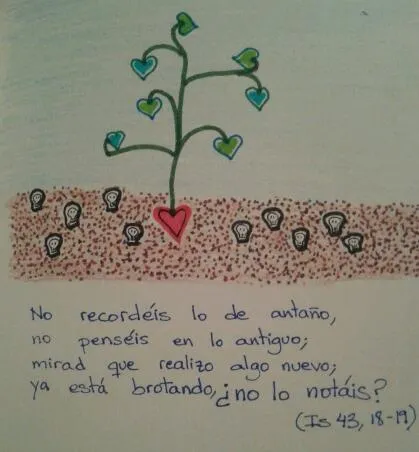 No recordéis lo de antaño,
no penséis en lo antiguo;
mirad que realizo algo nuevo;
ya está brotando, ¿no lo notáis?
(Is 43, 18-19)